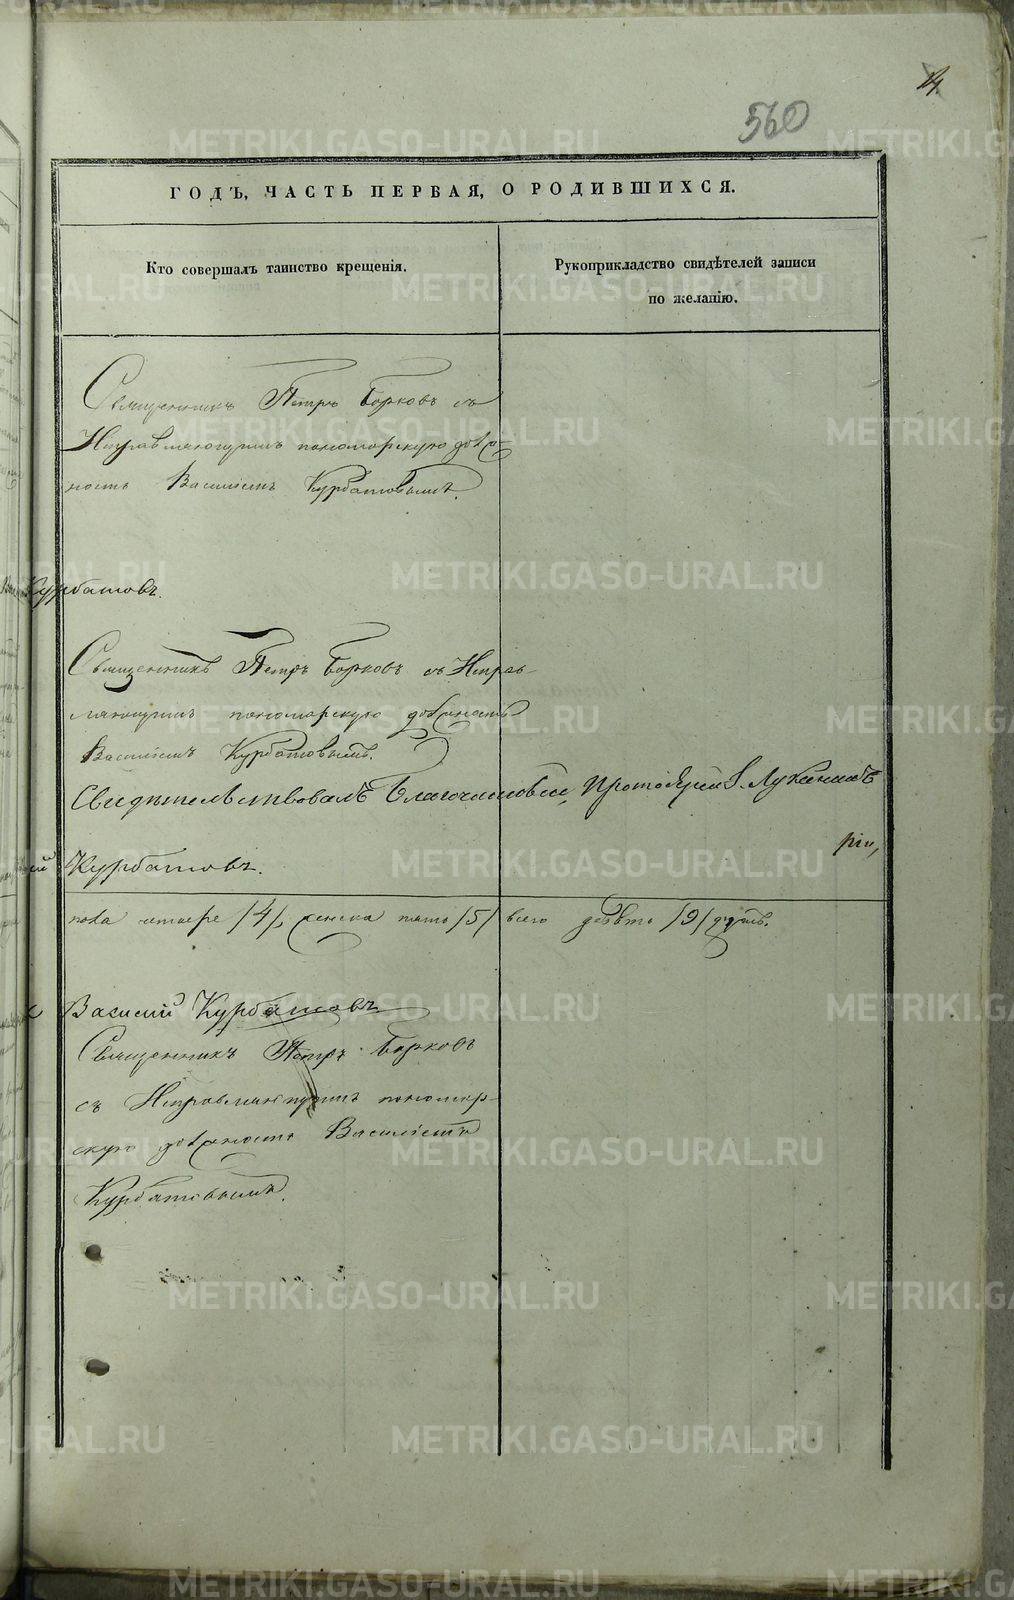 560
ГОДЪ, ЧАСТЬ ПЕРВАЯ, О РОДИВШИХСЯ.
Кто совершалъ таинство крещенія.
Рукоприкладство свидѣтелей записи
по желанію.
Священникъ Петръ Борковъ съ
Исправляющимъ пономарскую долж-
ность Василіемъ Курбатовымъ.
Курбатовъ.
Священникъ Петръ Борковъ съ Исправ-
ляющимъ пономарскую должность
Василіемъ Курбатовымъ.
Свидѣтельствовалъ Благочинный, Протоіерей І. Луканинъ
Курбатовъ.
пола четыре /4/, женска пять /5/ всего девять /9/ душъ.
Василій Курбатовъ
Священникъ Петръ Борковъ
съ Исправляющимъ пономар-
скую должность Василіемъ
Курбатовымъ.
METRIKI.GASO-URAL.RU